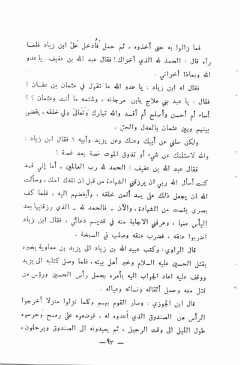 فما زالوا به حتى أخذوه ، ثم حمل فأُدخل على ابن زياد فلما
رآه قال : الحمد لله الذي أخزاك ! فقال عبد الله بن عفيف : يا عدو
الله وبماذا أخزاني .
فقال له ابن زياد : يا عدو الله ما تقول في عثمان بن عفان ؟
فقال : يا عبد بني علاج يابن مرجانه ، وشتمه ما أنت وعثمان ؟
أساء أم أحسن وأصلح أم أفسد والله تبارك وتعالى ولي خلقه ، يقضي
بينهم وبين عثمان بالعدل والحق .
ولكن سلني عن أبيك وعنك وعن يزيد وأبيه ؟ فقال ابن زياد :
والله لا سئلتك عن شيء أو تذوق الموت غصة بعد غصة !
فقال عبد الله بن عفيف : الحمد لله رب العالمين ، أما إني قد
كنت أسأل الله ربي ان يرزقني الشهادة من قبل ان تلدك امك ، وسألت
الله ان يجعل ذلك على يدي ألعن خلقه ، وأبغضهم اليه ، فلما كف
بصري يئست من الشهادة ، والآن - فالحمد لله ، الذي رزقنيها بعد
اليأس منها ، وعرفني الاجابة منه في قديم دعائي ، فقال ابن زياد
اضربوا عنقه ، فضرب عنقه وصلب في السبخة .
قال الراوي : وكتب عبيد الله بن زياد الى يزيد بن معاوية يخبره
بقتل الحسين عليه السلام وخبر أهل بيته ، فلما وصل كتابه الى يزيد
ووقف عليه اعاد الجواب اليه يأمره بحمل رأس الحسين ورؤس من
قتل معه وحمل أثقاله ونسائه وعياله .
قال ابن الجوزي : وسار القوم بهم وكلما نزلوا منزلا أخرجوا
الرأس من الصندوق الذي أعدوه له ، فوضعوه على رمح وحرسوه
طول الليل الى وقت الرحيل ، ثم يعيدونه الى الصندوق ويرحلون ،
- ٩٣ -